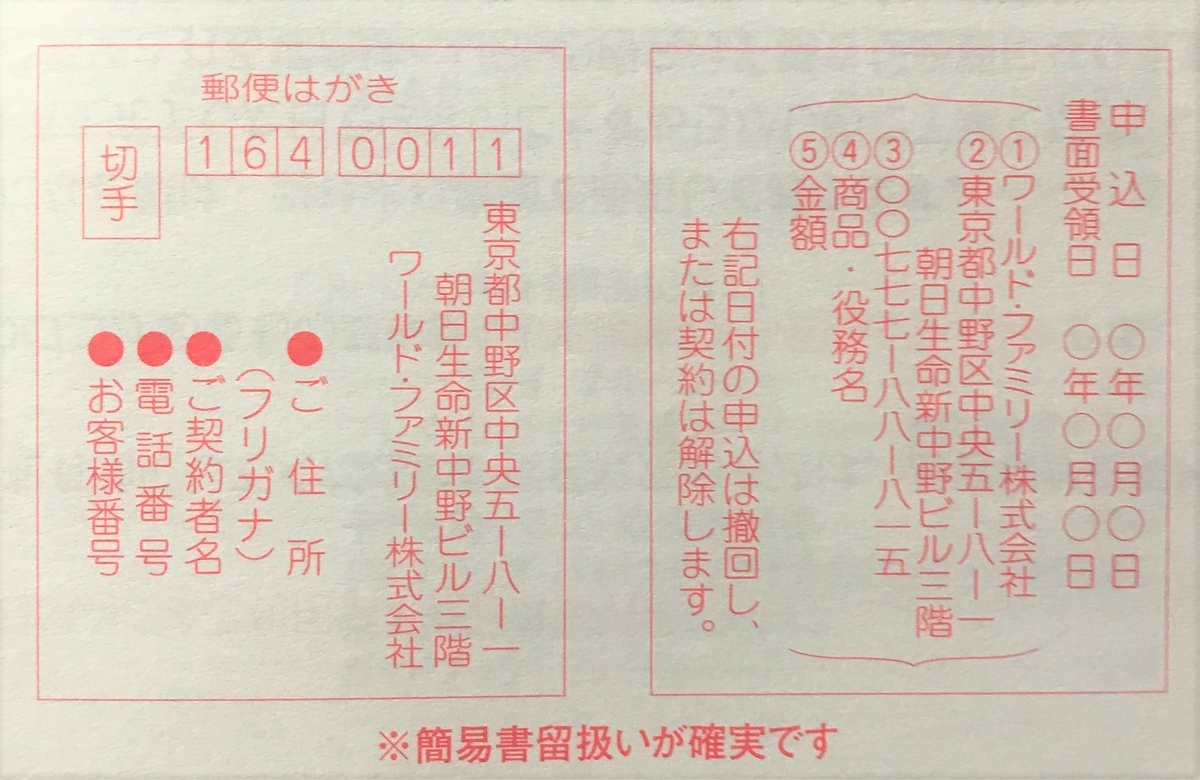 郵便はがき
切手
164 0011
東京都中野区中央五ー八ー一
朝日生命新中野ビル三階
ワールド・ファミリー株式会社
●ご住所
(フリガナ)
●ご契約者名
●電話番号
●お客様番号
申込日 〇年〇月〇日
書面受領日 〇年〇月〇日
①ワールド・ファミリー株式会社
②東京都中野区中央五ー八ー一
朝日生命新中野ビル三階
③〇〇七七七ー八八ー八一五
④商品・役務名
⑤金額
右記日付の申込は撤回し、
または契約は解除します。
※簡易書留扱いが確実です